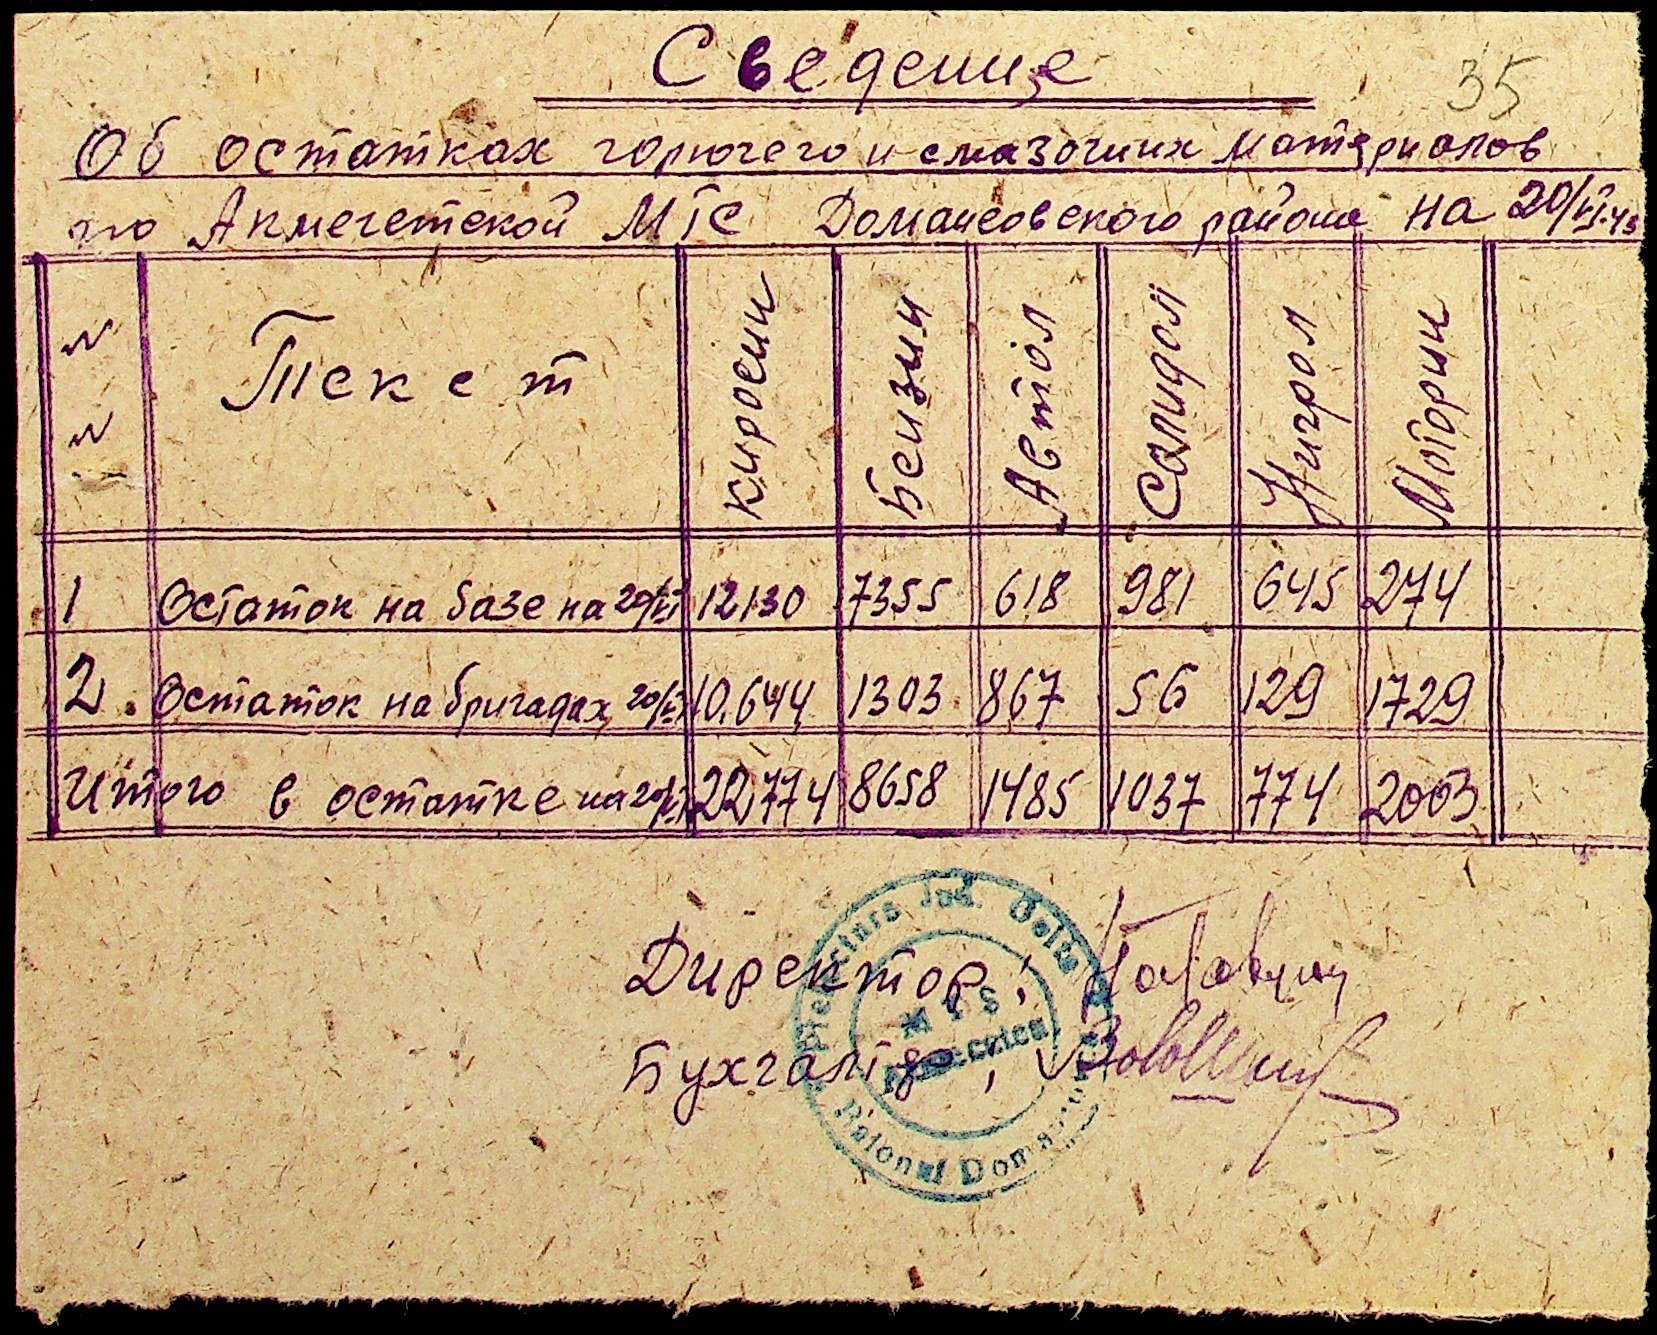 35
Сведение
Об остатках горючего и смазочных материалов
по Акмечетской МТС Доманевского района на 20/VI-43
№ Текст Кироси́н Бензин Автол Солидол Нигрол Моторин
№
1 Остаток на базе на 20/VI 12130 7355 618 981 645 274
2. Остаток на бригадах 20/VI 10.644 1303 867 56 129 1729
Итого в остатке на 20/VI 22,774 8658 1485 1037 774 2003
Директор:
Бухгалтер,
Prefectura Jud. Golta
MTS
Raional Domanovca